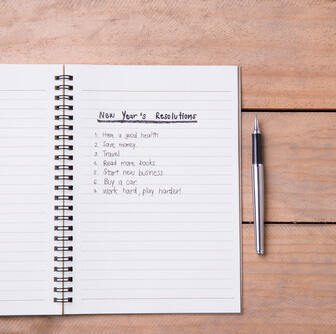 New Year's Resolutions
1. Have a good health
2. Save money.
3. Travel
4. Read more books.
5. Start new business
6. Buy a car.
7. Work hard, play harder!